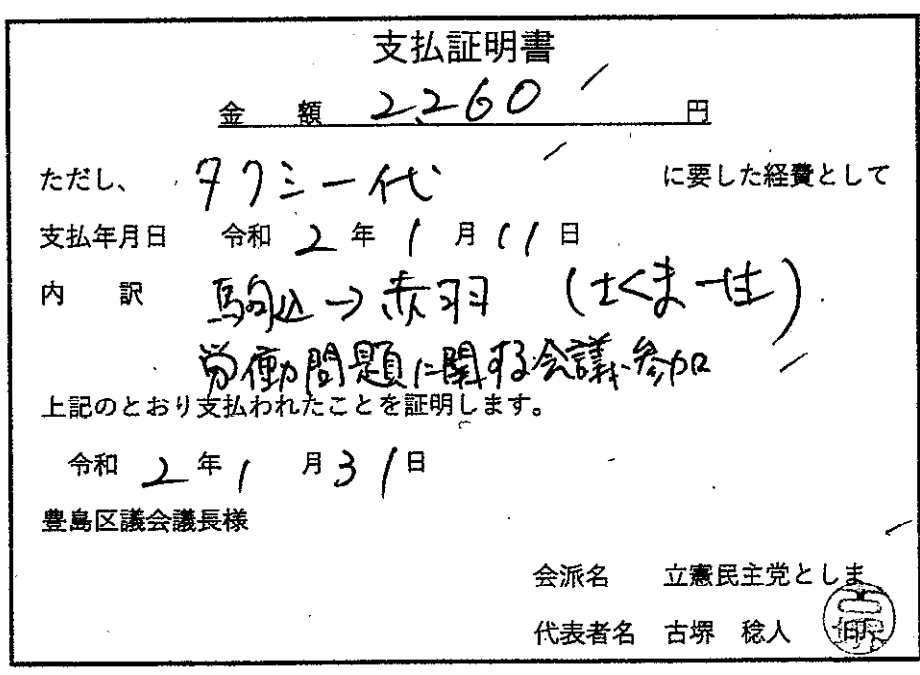 支払証明書
金 額 2,260 円
ただし、 タクシー代 に要した経費として
支払年月日 令和 2 年 1 月 11 日
内 訳 駒込→赤羽 (さくま一仕)
労働問題に関する会議に参加
上記のとおり支払われたことを証明します。
令和 2 年 1 月 31 日
豊島区議会議長様
会派名 立憲民主党としま
代表者名 古堺 稔人